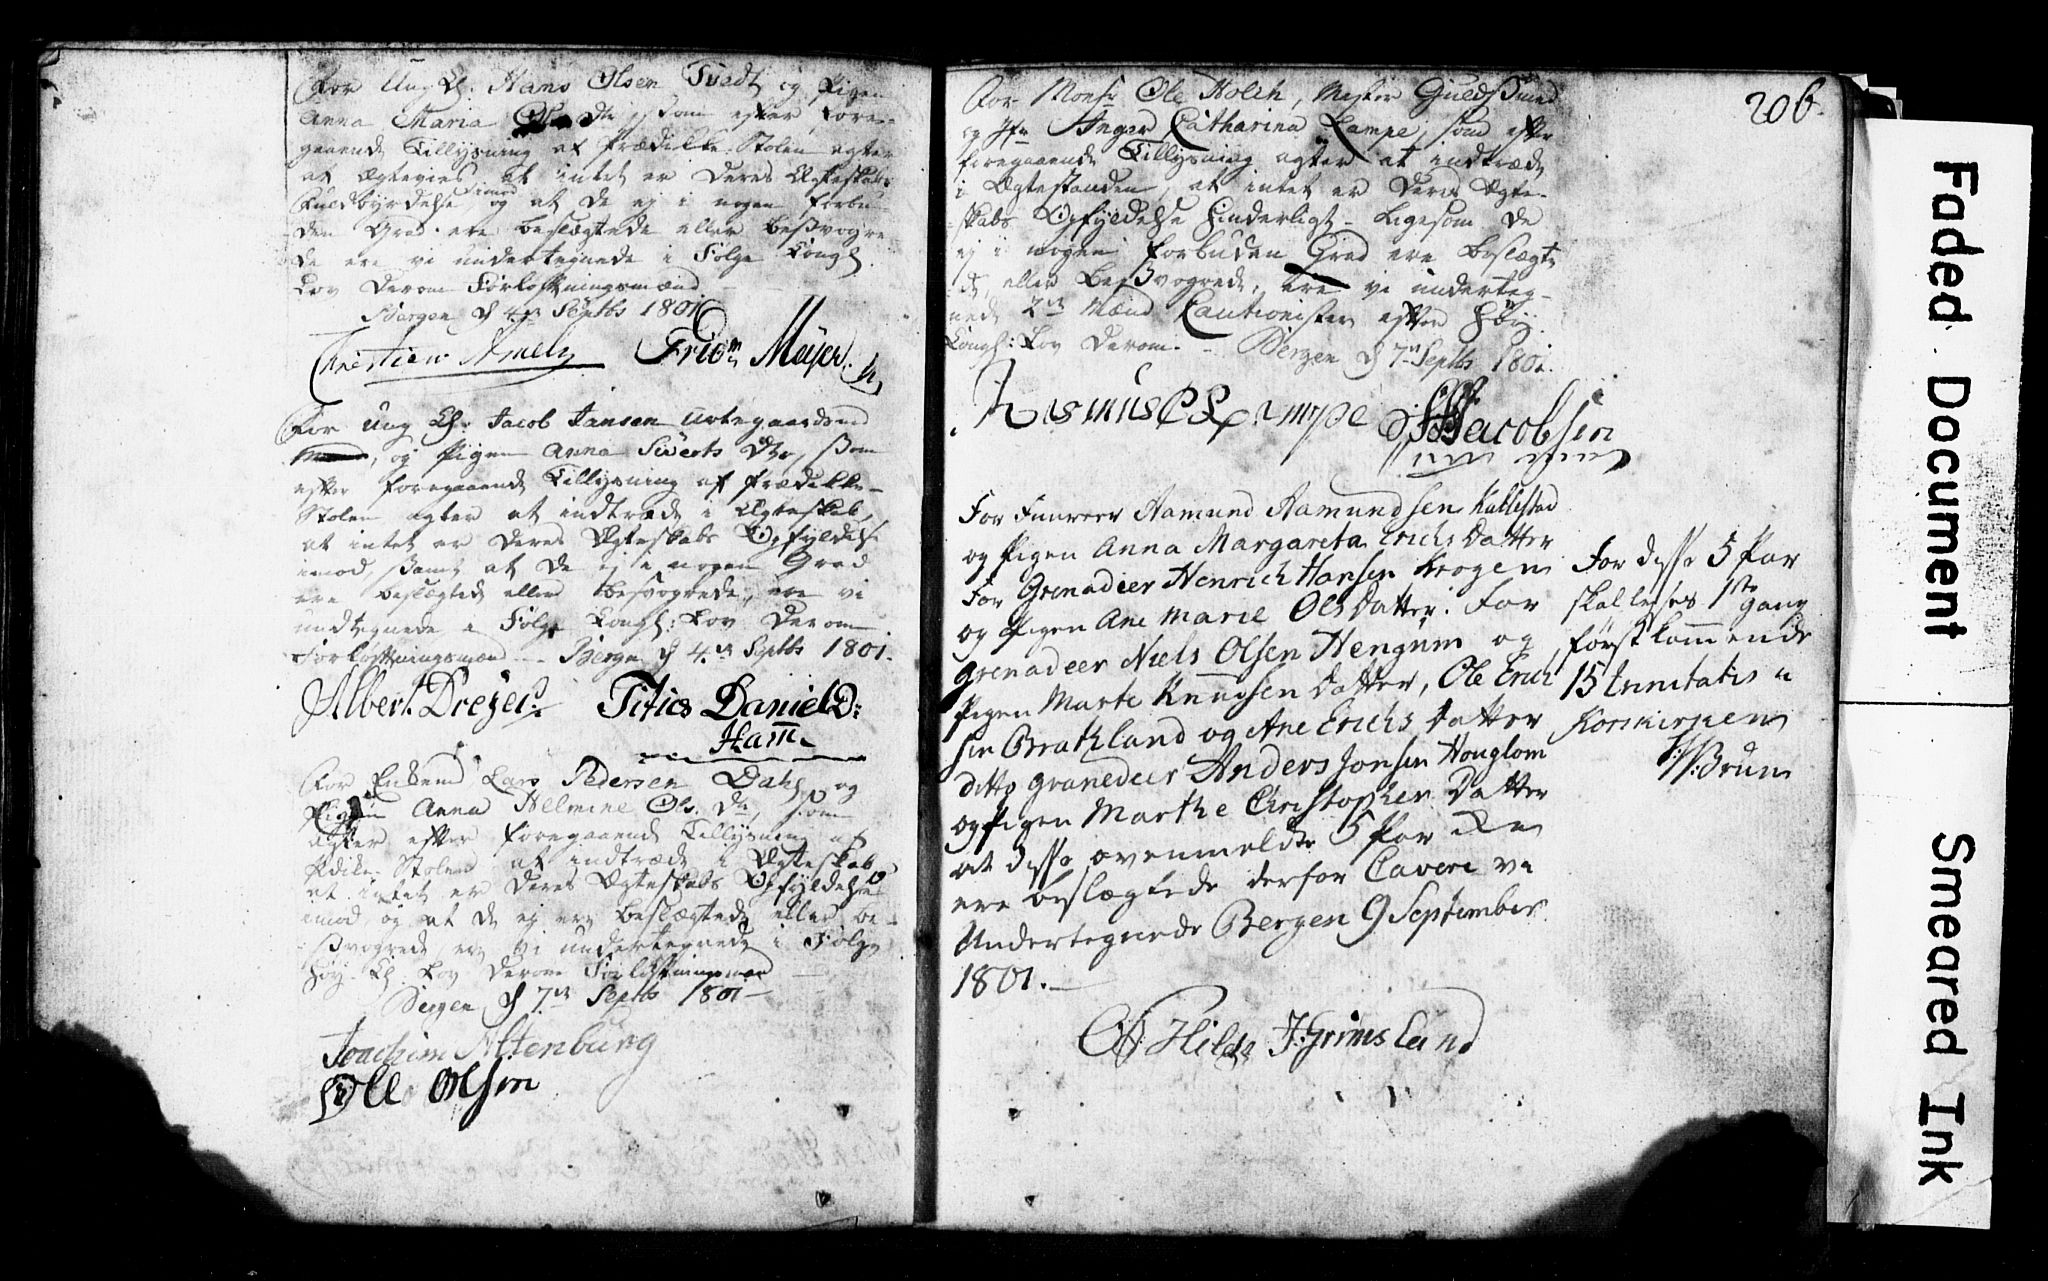 For Ung K. Hans Olsen Tvedt og Pigen
Anna Maria Ols Dtr, som efter fore-
gaaende Tillysning af Prædike-Stolen agter
at ægtevies at intet er Deres Ægteskabs
Fuldbyrdelse imod og at De ej i nogen forbu-
den Grad ere beslægtede eller besvogre
de ere vi undertegnede i Følge Kongl.
Lov Derom Forlovtningsmænd
Bergen d 4de Septbr 1801
Christien Amely Frid Meyer
For Ung K: Jacob Jansen Urtegaardsmd
og Pigen Anna Siverts Dtr, som
efter foregaaende Tillysning af Prædike-
Stolen agter at indtræde i Ægteskab,
at intet er Deres Ægteskabs Opfyldelse
imod, samt at De ej i nogen Grad
ere beslægtede eller besvogrede, ere vi
undtegnede i Følge Kongl: Lov Derom
Forlovtningsmænd - Bergen d 4de Septbr 1801.
Albert Dreyer. Titus Daniel D:
Ham
For Lars Pedersen Dahl og
Pigen Anna Helmine Ols. Dtr, som
agter efter foregaaende Tillysning af
Stolen at indtræde i Ægteskab
at intet er Deres Ægteskabs Opfyldelse
imod, og at De ej ere beslægtede eller be-
svogrede ere vi undertegnede i Følge
høy K. Lov Derom Forlovtningsmænd
Bergen d 7de Septbr 1801
Joachim Altenburg
Olle Olsen
206.
For Monsr Ole Holch, Mester Guldsmed
og Jfr Inger Catharina Lampe, som efter
foregaaende Tillysning agter at indtræde
i Ægtestanden, at intet er Deres Ægte-
skabs Opfyldelse hinderligt - Ligesom De
ej i nogen forbuden Grad ere beslægte
de eller besvogrede, ere vi underteg-
nede 2de Mænd Cautionister efter høy
Kongl: Lov Derom. - Bergen d 7de Septbr 1801.
Rasmus Lampe Jacobsen
For Fuureer Aamund Aamundsen Kallestad
og Pigen Anna Margareta Erichs Datter
For Grenadeer Henrich Hansen Krogen
og Pigen Ane Marie Ols Datter. For
Grenadeer Niels Olsen Hengum og
Pigen Marte Knudsen Datter, Ole Erich
sen Brathland og Ane Erichs Datter
ditto granedeer Anders Jonsen Houglom
og Pigen Marthe Christopher Datter
at disse ovenmeldte 5 Par Ike
ere beslægtede derfor Cavere vi
Undertegnede Bergen 9 September
1801.
Hilde J: Grimseland
For disse 5 Par
skal leses 1ste gang
førstkommende
15 Trinitatis i
Korskirken
Bruun
Faded Document
Smeared Ink